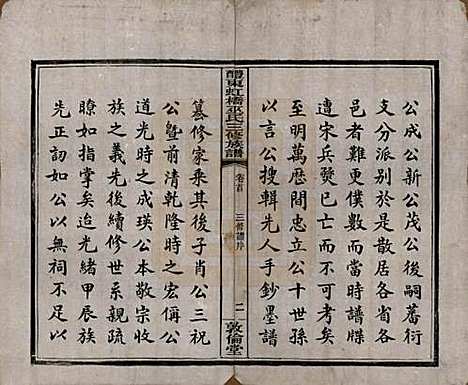 公成公新公茂公後嗣蕃衍
支分派别於是散居各縣各
邑者難更僕數而當時譜牒
遭宋兵燹已亡而不可考矣
至明萬厯間忠立公十世孫
以言公搜輯先人手鈔墨譜
醴東虹橋巫氏三修族譜
卷首
三修譜序
二
敦倫堂
纂修家乘其後子肖公三祝
公曁前清乾隆時之宏偁公
道光時之成瑛公本敬宗收
族之義先後續修世系親疏
瞭如指掌矣迨光緒甲辰族
先正訒如公以無祠不足以